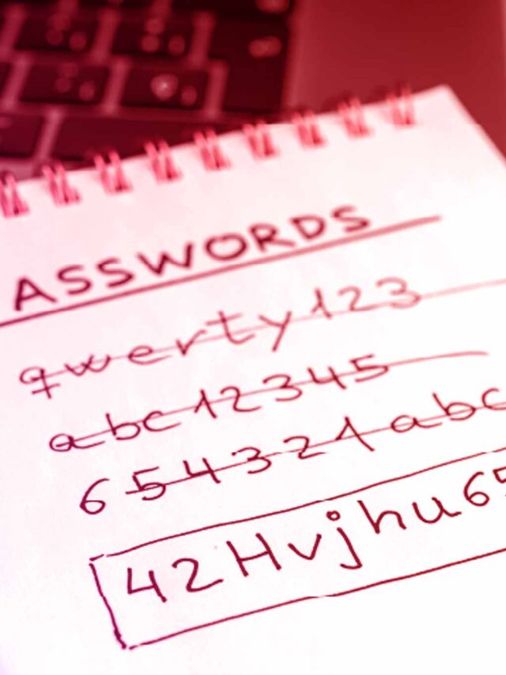 ASSWORDS
qwerty123
abc12345
654321abc
42Hvjhu65